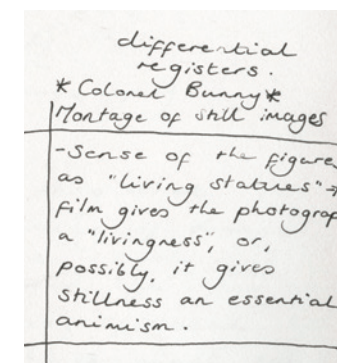 differential
registers.
*Colonel Bunny*
Montage of still images
-Sense of the figure
as "living statues" →
film gives the photograp
a "livingness", or,
possibly, it gives
stillness an essential
animism.